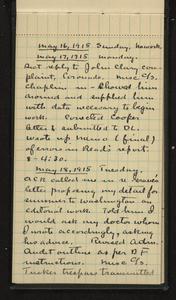 May 16, 1915 Sunday, no work.
May 17, 1915 Monday.
Dict reply to John Clay com-
plaint, Coronado. Misc C/s.
Chaplin in - Showed him
around and supplied him
with data necessary to begin
work. Corrected Cooper
letter & submitted to DL.
Wrote up memo (final)
of errors in Read's report.
8 - 4:30.
May 18, 1915 Tuesday,
ACR called me in re
letter proposing my detail for
summer to Washington on
editorial work. Told him I
would ask my doctor whom
I wrote accordingly, asking
his advice. Revised Adm.
Audit outline as per DF
instructions. Misc C/s.
Tucker trespass transmitted